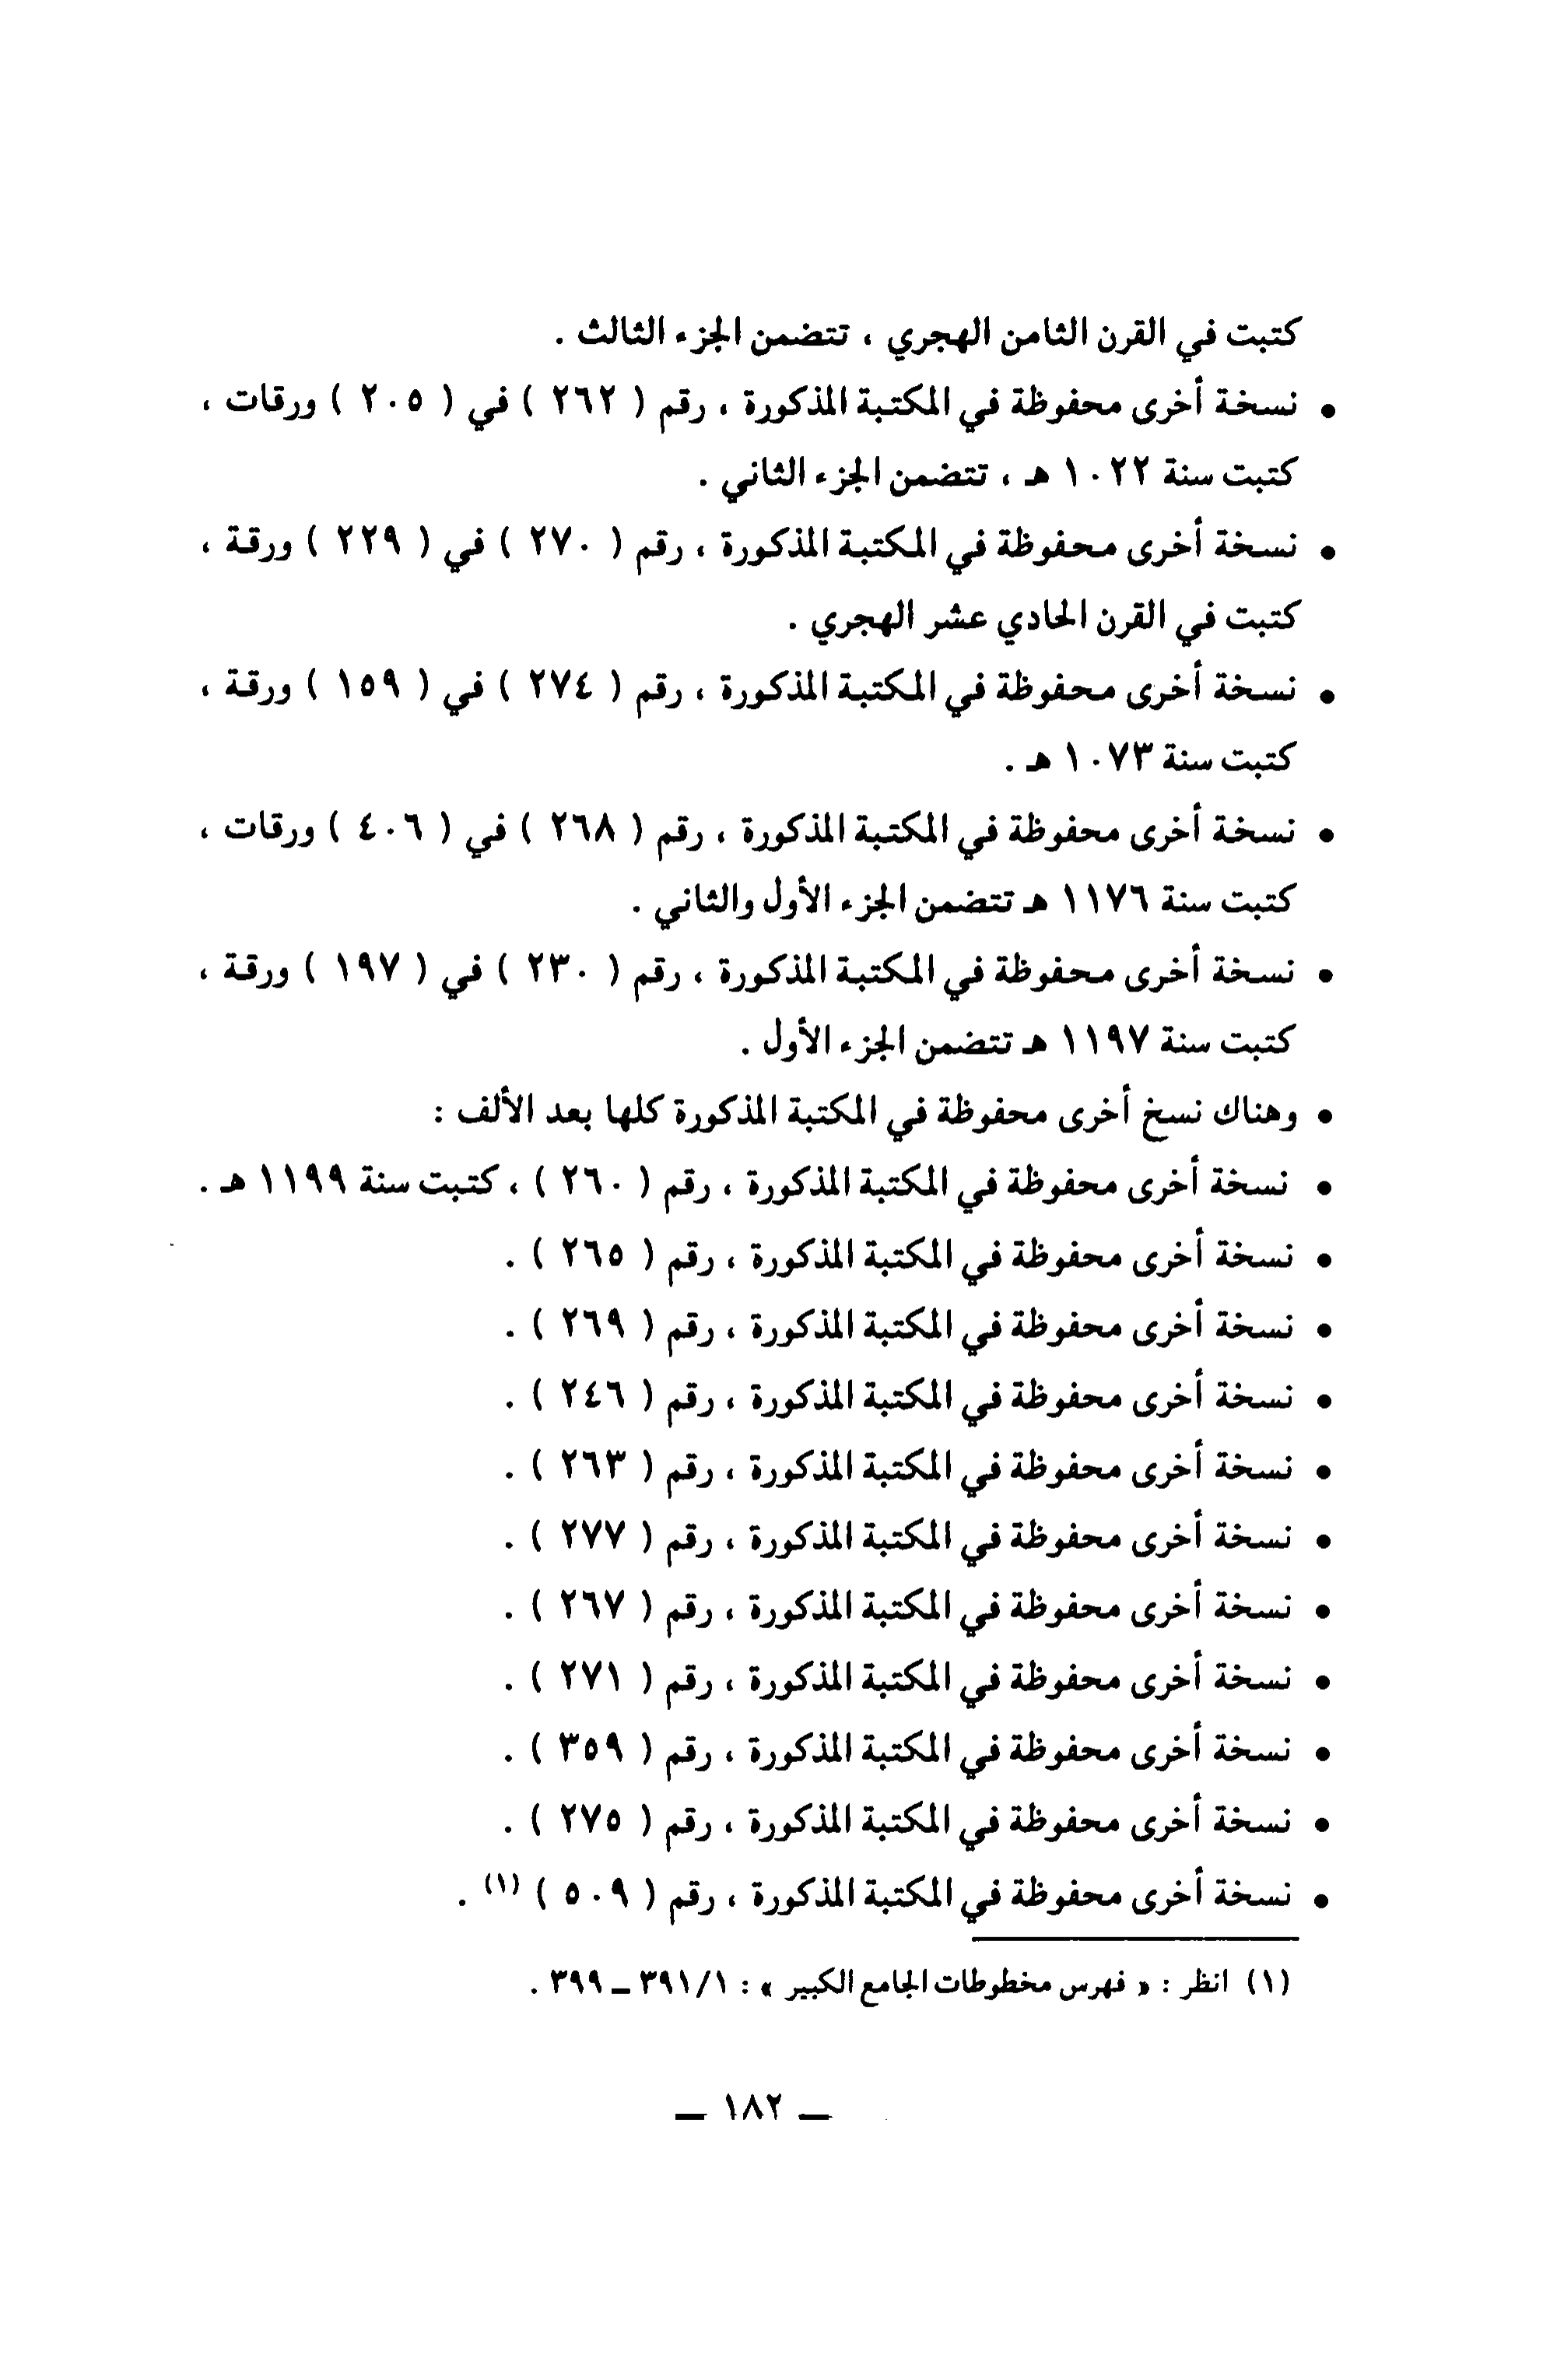 كتبت في القرن الثامن الهجري ، تتضمن الجزء الثالث .
• نسخة أخرى محفوظة في المكتبة المذكورة ، رقم ( ٢٦٢ ) في ( ٢٠٥ ) ورقات ،
كتبت سنة ١٠٢٢ هـ ، تتضمن الجزء الثاني .
• نسخة أخرى محفوظة في المكتبة المذكورة ، رقم ( ٢٧٠ ) في ( ٢٢٩ ) ورقة ،
كتبت في القرن الحادي عشر الهجري .
• نسخة أخرى محفوظة في المكتبة المذكورة ، رقم ( ٢٧٤ ) في ( ١٥٩ ) ورقة ،
كتبت سنة ١٠٧٣ هـ .
• نسخة أخرى محفوظة في المكتبة المذكورة ، رقم ( ٢٦٨ ) في ( ٤٠٦ ) ورقات ،
كتبت سنة ١١٧٦ هـ تتضمن الجزء الأول والثاني .
• نسخة أخرى محفوظة في المكتبة المذكورة ، رقم ( ٢٣٠ ) في ( ١٩٧ ) ورقة ،
كتبت سنة ١١٩٧ هـ تتضمن الجزء الأول .
• وهناك نسخ أخرى محفوظة في المكتبة المذكورة كلها بعد الألف :
• نسخة أخرى محفوظة في المكتبة المذكورة ، رقم ( ٢٦٠ ) ، كتبت سنة ١١٩٩ هـ .
• نسخة أخرى محفوظة في المكتبة المذكورة ، رقم ( ٢٦٥ ) .
• نسخة أخرى محفوظة في المكتبة المذكورة ، رقم ( ٢٦٩ ) .
• نسخة أخرى محفوظة في المكتبة المذكورة ، رقم ( ٢٤٦ ) .
• نسخة أخرى محفوظة في المكتبة المذكورة ، رقم ( ٢٦٣ ) .
• نسخة أخرى محفوظة في المكتبة المذكورة ، رقم ( ٢٧٧ ) .
• نسخة أخرى محفوظة في المكتبة المذكورة ، رقم ( ٢٦٧ ) .
• نسخة أخرى محفوظة في المكتبة المذكورة ، رقم ( ٢٧١ ) .
• نسخة أخرى محفوظة في المكتبة المذكورة ، رقم ( ٣٥٩ ) .
• نسخة أخرى محفوظة في المكتبة المذكورة ، رقم ( ٢٧٥ ) .
• نسخة أخرى محفوظة في المكتبة المذكورة ، رقم ( ٥٠٩ ) (١) .
(١) انظر : « فهرس مخطوطات الجامع الكبير » : ٣٩١/١ ـ ٣٩٩ .
ـ ١٨٢ ـ